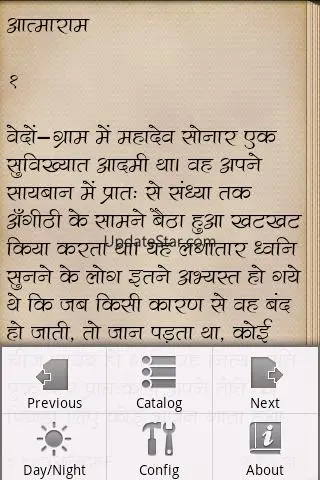 आत्माराम
१
वेदों–ग्राम में महादेव सोनार एक
सुविख्यात आदमी था। वह अपने
सायबान में प्रातः से संध्या तक
अँगीठी के सामने बैठा हुआ खटखट
किया करता था। यह लगातार ध्वनि
UpdateStar.com
सुनने के लोग इतने अभ्यस्त हो गये
थे कि जब किसी कारण से वह बंद
हो जाती, तो जान पड़ता था, कोई
Previous
Catalog
Next
Day/Night
Config
About